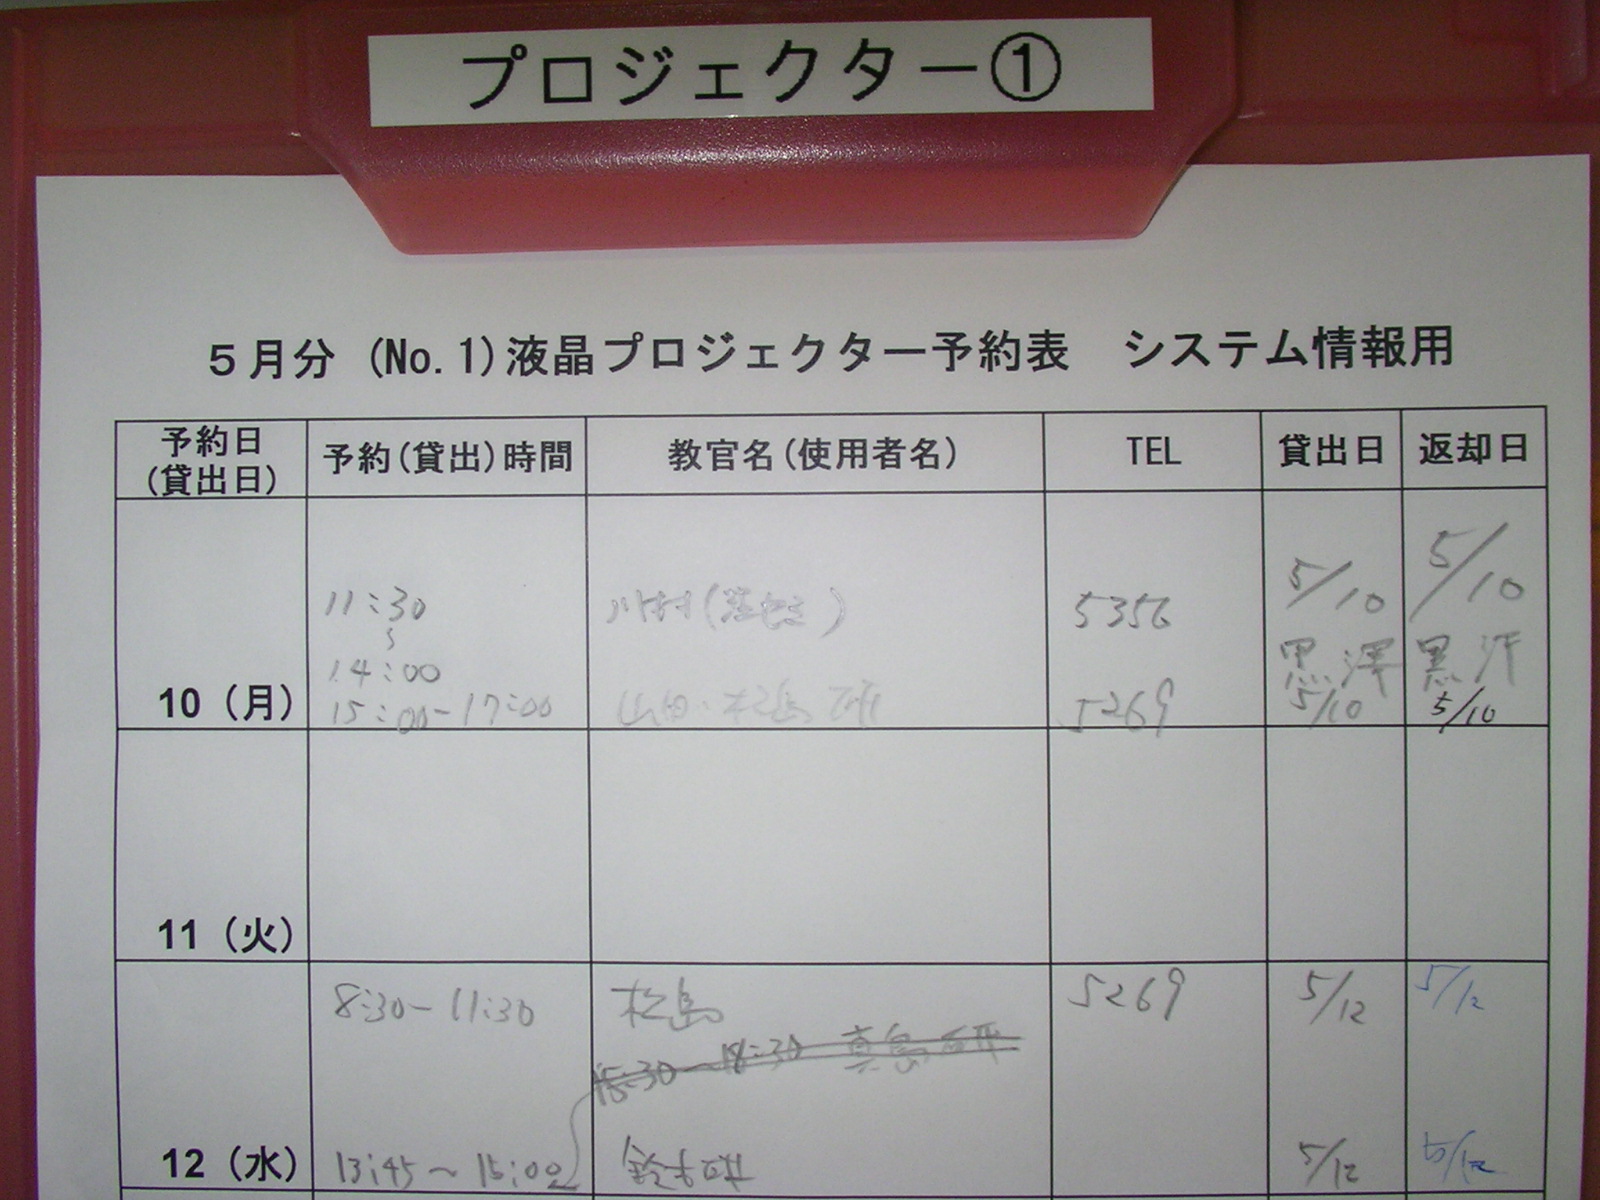 プロジェクター①
5月分 (No.1)液晶プロジェクター予約表 システム情報用
予約日
(貸出日)
予約(貸出)時間
教官名(使用者名)
TEL
貸出日
返却日
10 (月)
11:30
〜
14:00
川村
5356
5/10
黒澤
5/10
黒沢
15:00-17:00
山田・松島研
5269
5/10
5/10
11 (火)
12 (水)
8:30-11:30
松島
5269
5/12
5/12
15:30〜18:30 真島研
13:45〜15:00
鈴木研
5/12
5/12